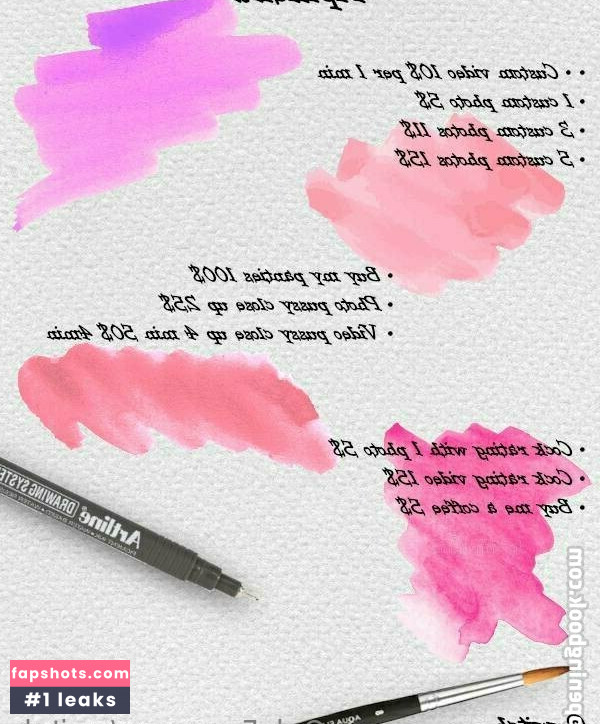 • • Custom video 10$ per 1 min
• 1 custom photo 5$
• 3 custom photos 11$
• 5 custom photos 15$
• Buy my panties 100$
• Photo pussy close up 25$
• Video pussy close up 4 min 50$ 4min
• Cock rating with 1 photo 5$
• Cock rating video 15$
• Buy me a coffee 5$
DRAWING SYSTEM
Artline
fapshots.com
#1 leaks